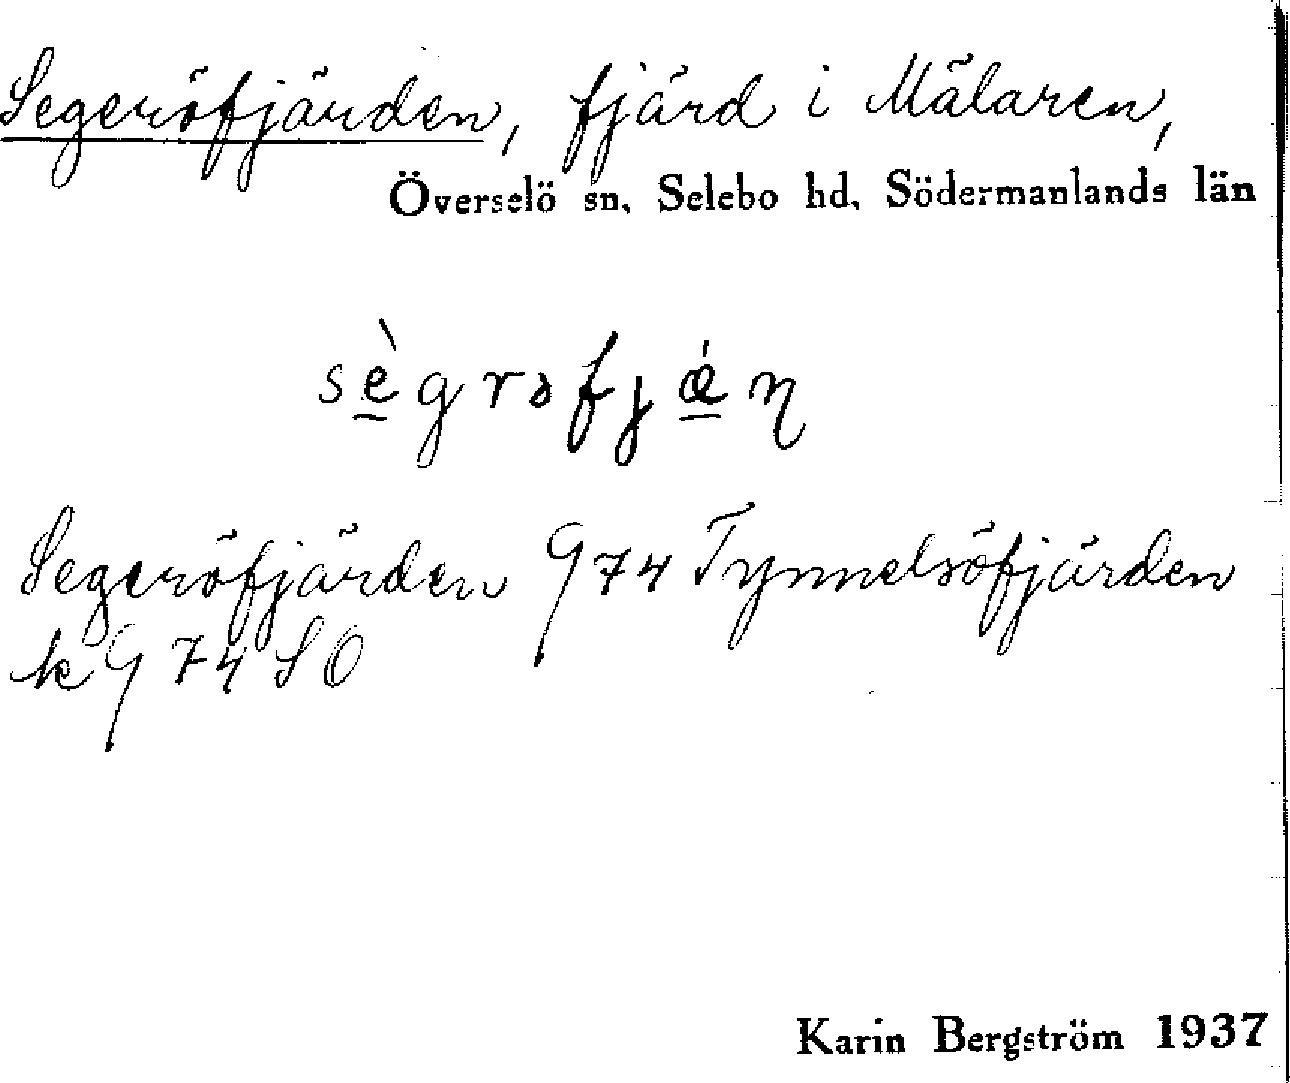 Segeröfjärden, fjärd i Mälaren,
Överselö sn. Selebo hd. Södermanlands län
sè̱grəfjǽ̱ɳ
Segeröfjärden G 74 Tynnelsöfjärden
k G 74 SO
Karin Bergström 1937